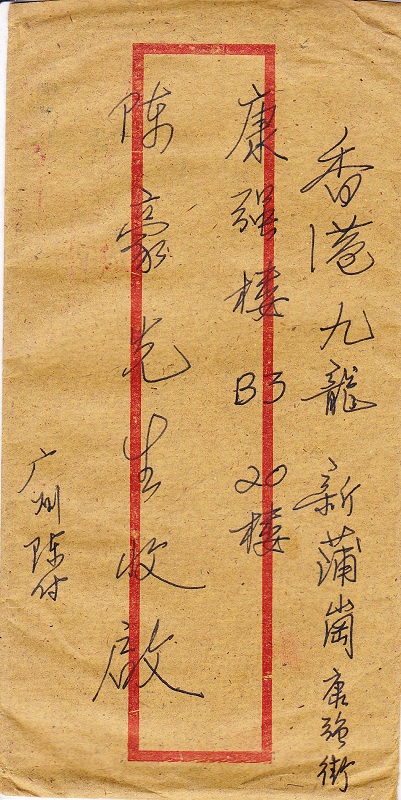 香港九龍 新蒲崗康強街
康强楼 B3 20楼
陈豪先生收啟
广州陈付